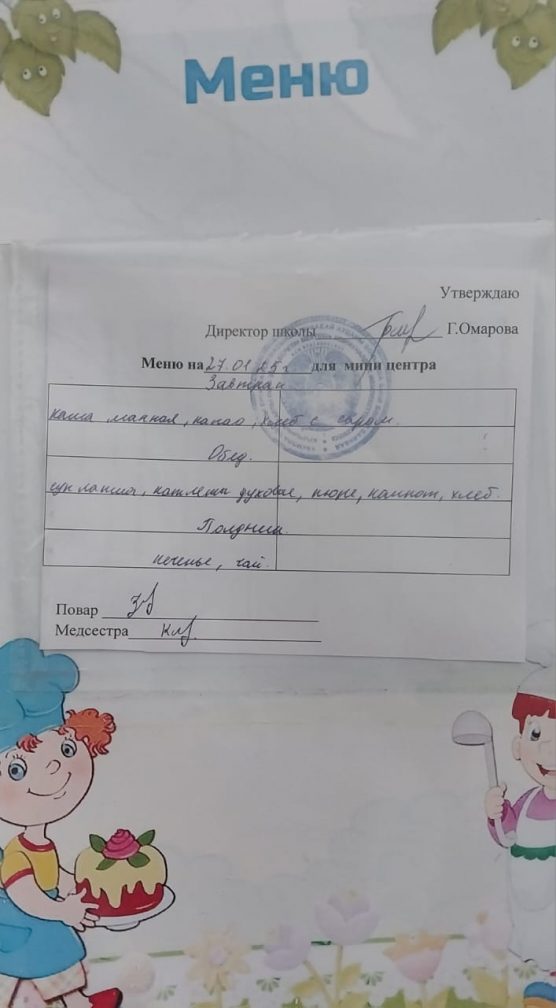 Меню
Утверждаю
Директор школы Г.Омарова
Меню на 27.01.25г для мини центра
Завтрак
каша манная, какао, хлеб с сыром.
Обед.
суп лапша, котлеты духовые, пюре, компот, хлеб.
Полдник.
печенье, чай.
Повар
Медсестра